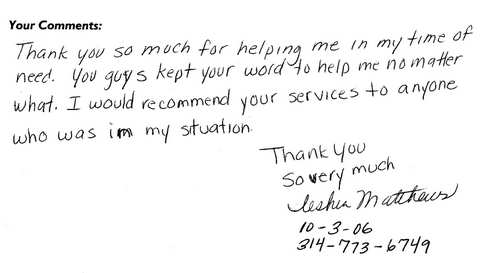 Your Comments:
Thank you so much for helping me in my time of
need. You guys kept your word to help me no matter
what. I would recommend your services to anyone
who was im my stuation.
Thank You
So very much
Ieshia Matthews
10-3-06
314-773-6749